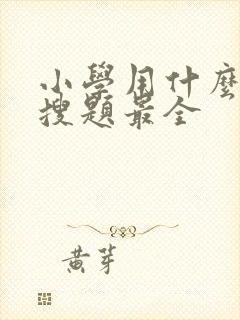 小學用什麼
搜題最全
黃芽